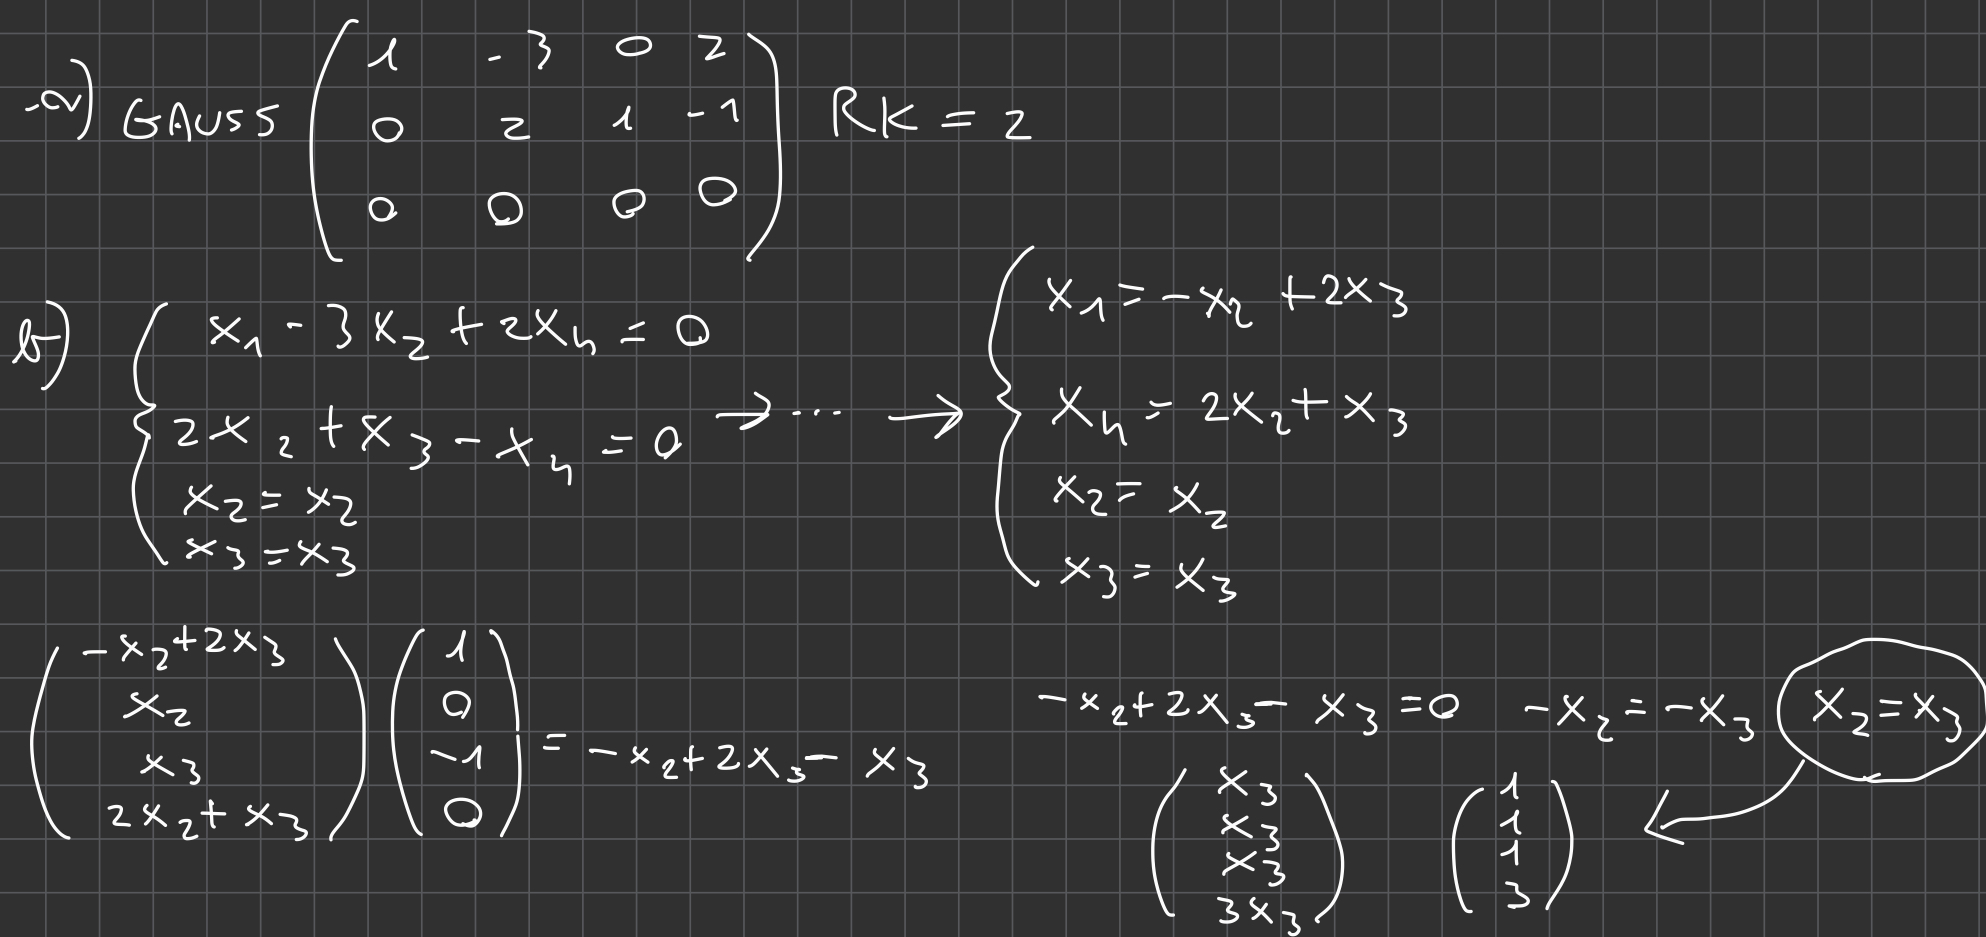 a) GAUSS
1 -3 0 2
0 2 1 -1
0 0 0 0
RK = 2
b)
x₁ - 3x₂ + 2x₄ = 0
2x₂ + x₃ - x₄ = 0
x₂ = x₂
x₃ = x₃
→ ... →
x₁ = -x₂ + 2x₃
x₄ = 2x₂ + x₃
x₂ = x₂
x₃ = x₃
-x₂ + 2x₃
x₂
x₃
2x₂ + x₃
1
0
-1
0
= -x₂ + 2x₃ - x₃
-x₂ + 2x₃ - x₃ = 0 -x₂ = -x₃ x₂ = x₃
x₃
x₃
x₃
3x₃
1
1
1
3